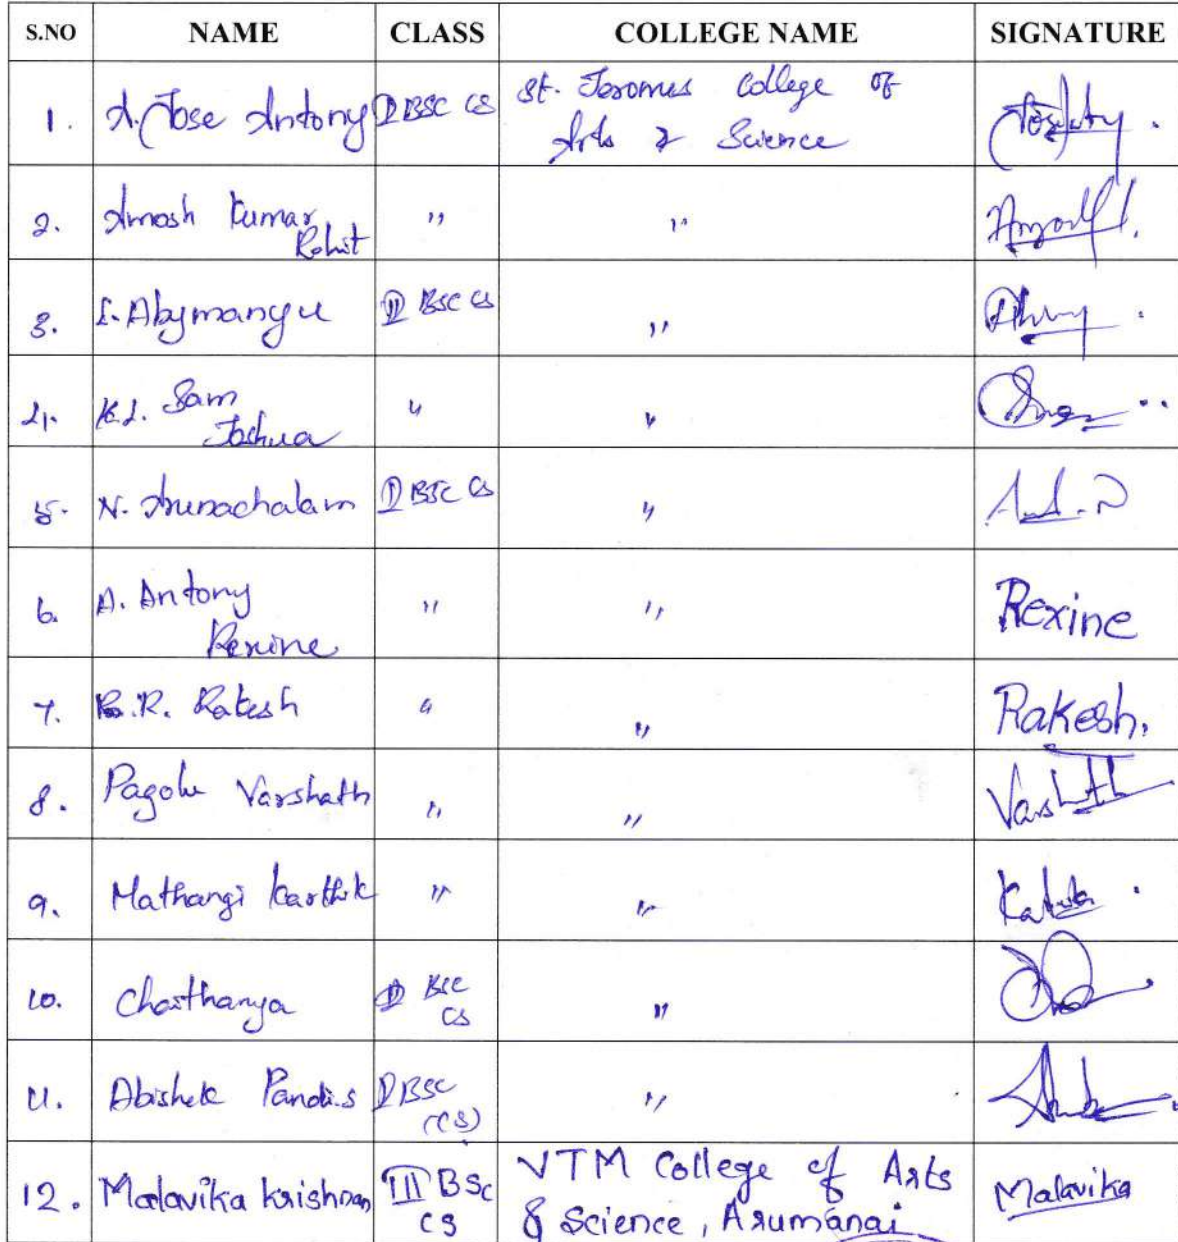 S.NO NAME CLASS COLLEGE NAME SIGNATURE
1. A. Jose Antony BSC CS St. Jeromes College of
Arts & Science
2. Amosh Kumar " "
Rohit
3. I. Abymangu II BSC CS "
4. K.J. Sam " "
Joshua
5. N. Arunachalam BSC CS "
6. A. Antony " " Rexine
Rexine
7. B.R. Rakesh " " Rakesh.
8. Pagolu Varshath " " Varshath
9. Mathangi Karthik " "
10. Chaithanya BSC "
CS
11. Abishek Pandi.s BSC "
(CS)
12. Malavika krishnan III BSc VTM College of Arts Malavika
CS & Science, Arumanai